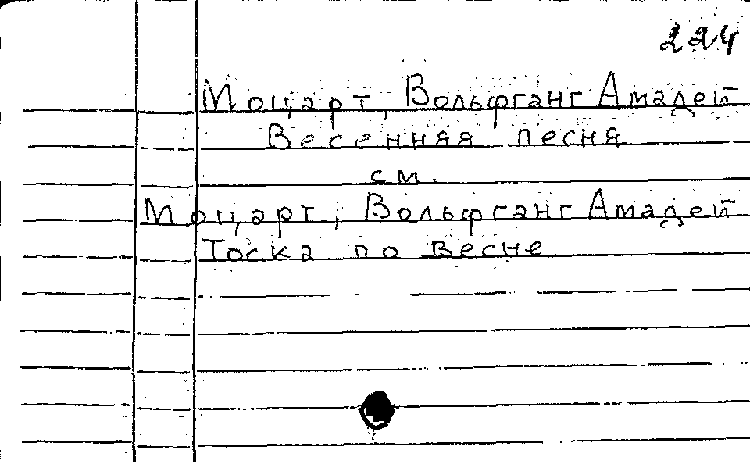 224
Моцарт, Вольфганг Амадей
Весенняя песня
см.
Моцарт, Вольфганг Амадей
Тоска по весне